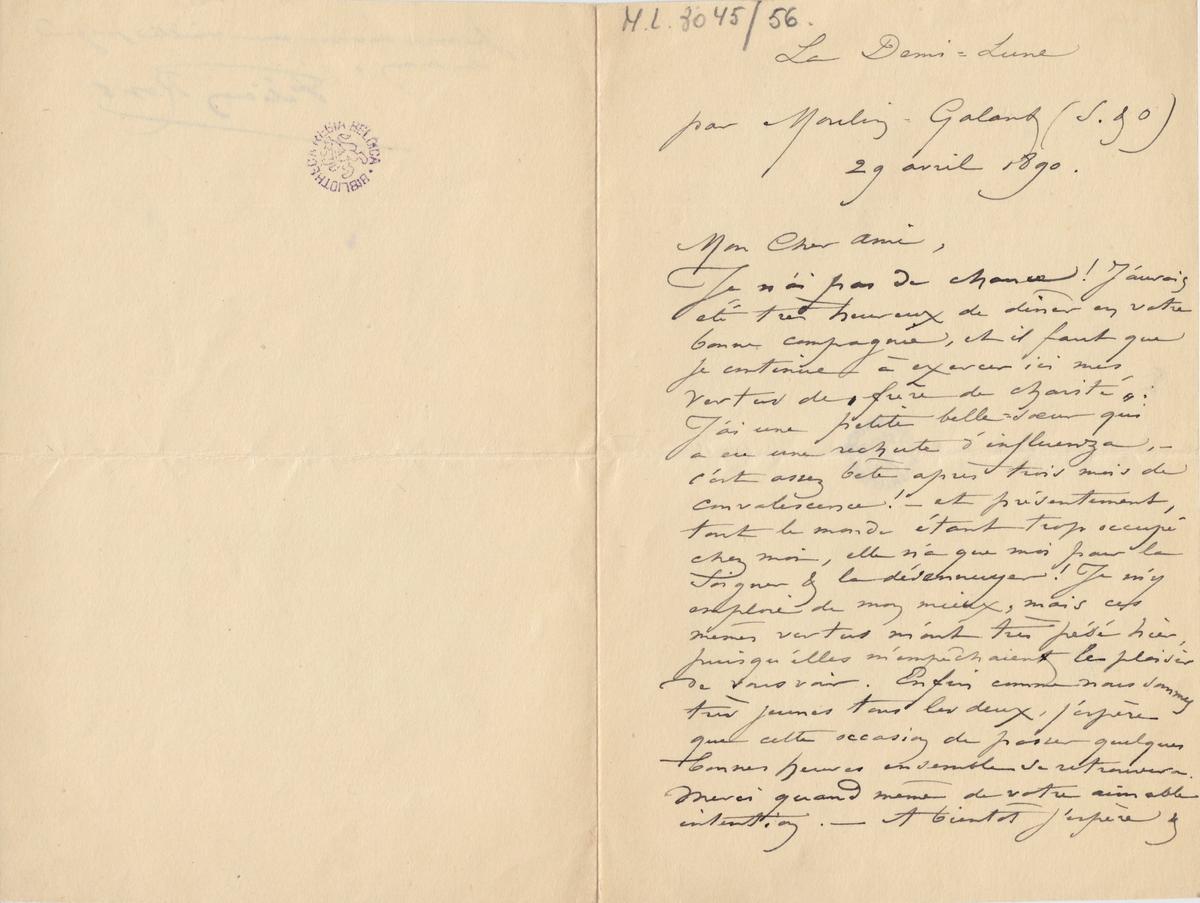 M.L. 3045/56.
La Demi=Lune
par Moulin-Galant (S. & O)
29 avril 1890.
BIBLIOTHECA REGIA BELGICA
Mon Cher Ami,
Je n'ai pas de chance! J'aurais
été très heureux de dîner en votre
bonne compagnie, et il faut que
je continue à exercer ici mes
vertus de „frère de charité„:
J'ai une petite belle=sœur qui
a eu une rechute d'influenza, –
c'est assez bête après trois mois de
convalescence! – et présentement,
tout le monde étant trop occupé
chez moi, elle n'a que moi pour la
soigner & la désennuyer! Je m'y
emploie de mon mieux, mais ces
mêmes vertus m'ont très pesé hier,
puisqu'elles m'empêchaient le plaisir
de vous voir. Enfin comme nous sommes
très jeunes tous les deux, j'espère
que cette occasion de passer quelques
bonnes heures ensemble se retrouvera.
Merci quand même de votre aimable
intention. – A bientôt j'espère &